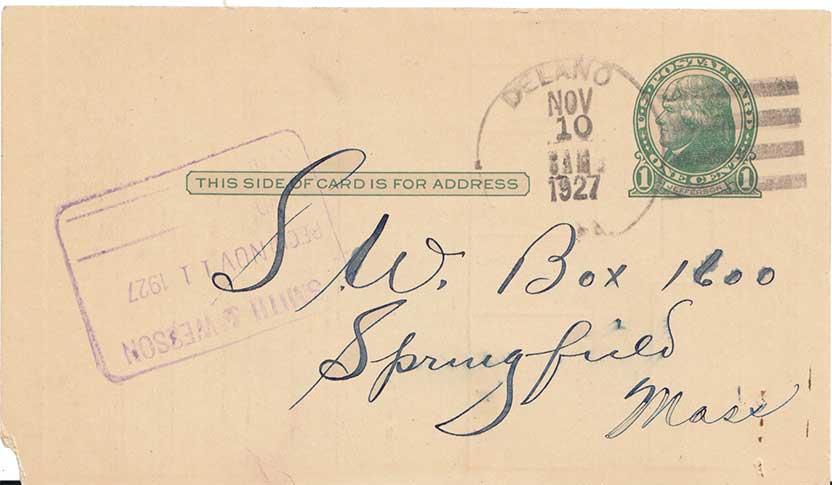 DELANO
NOV
10
8 AM
1927
PA.
U.S. POSTAL CARD
ONE CENT
1 JEFFERSON 1
THIS SIDE OF CARD IS FOR ADDRESS
S. W. Box 1600
Springfield
Mass
SMITH & WESSON
REC'D NOV 11 1927